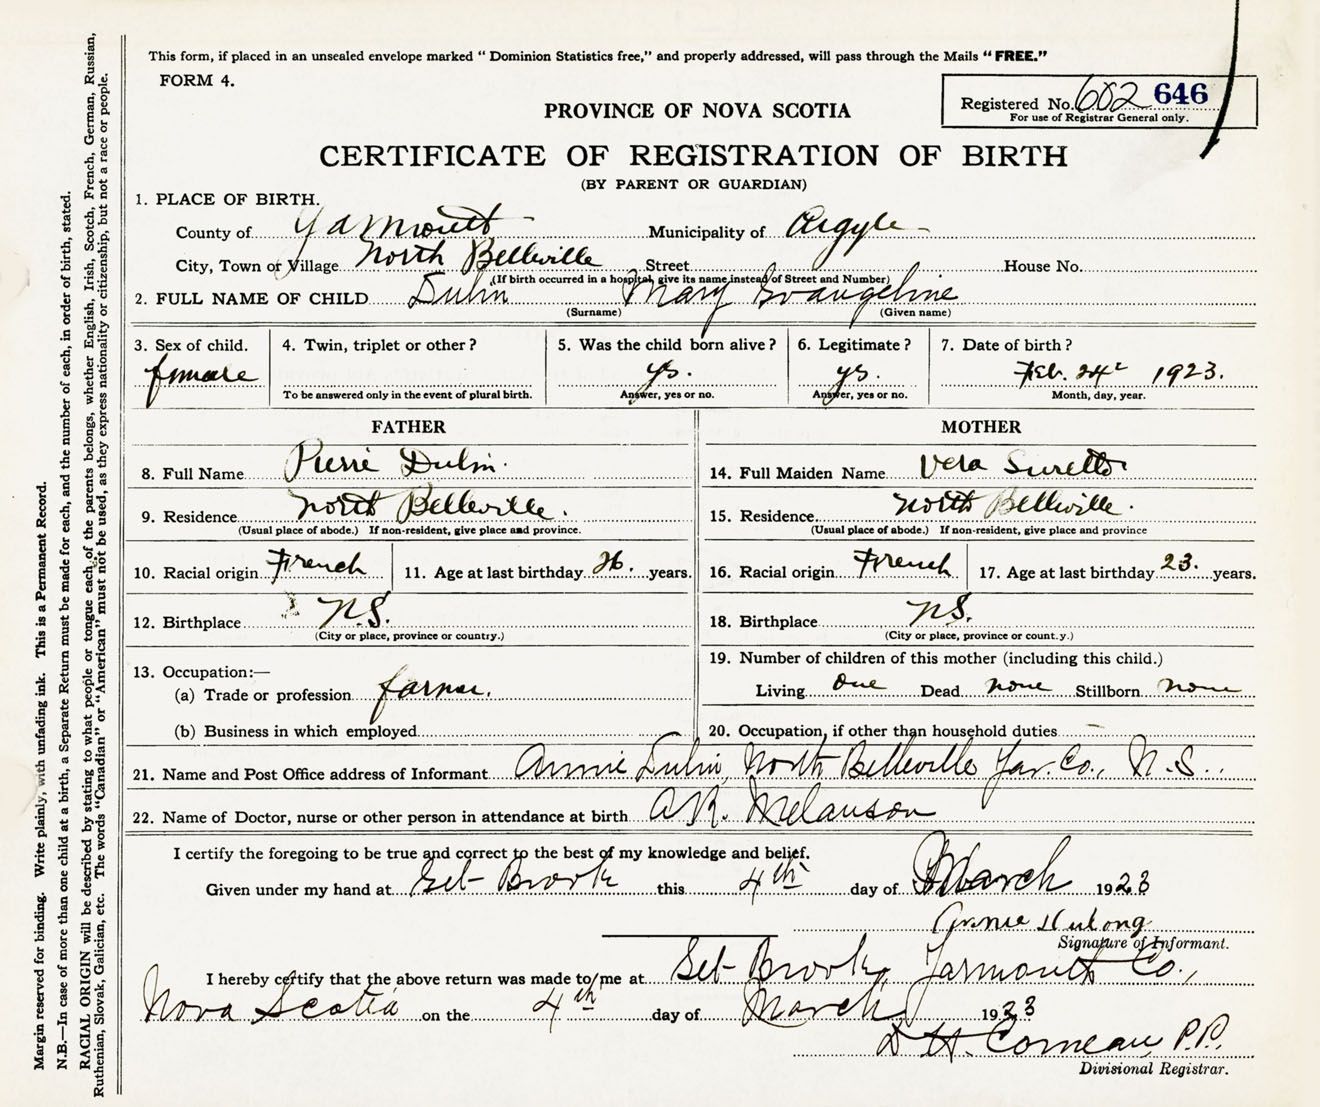 This form, if placed in an unsealed envelope marked “ Dominion Statistics free,” and properly addressed, will pass through the Mails “FREE.”
FORM 4.
Registered No. 602 646
For use of Registrar General only.
PROVINCE OF NOVA SCOTIA
CERTIFICATE OF REGISTRATION OF BIRTH
(BY PARENT OR GUARDIAN)
1. PLACE OF BIRTH.
County of Yarmouth Municipality of Argyle
City, Town or Village North Belleville Street House No.
(If birth occurred in a hospital, give its name instead of Street and Number)
2. FULL NAME OF CHILD Dulin Mary Evangeline
(Surname) (Given name)
3. Sex of child. 4. Twin, triplet or other? 5. Was the child born alive? 6. Legitimate? 7. Date of birth?
female yes. yes. Feb. 24 1923.
To be answered only in the event of plural birth. Answer, yes or no. Answer, yes or no. Month, day, year.
FATHER MOTHER
8. Full Name Pierre Dulin. 14. Full Maiden Name Vera Surette
9. Residence North Belleville. 15. Residence North Belleville.
(Usual place of abode.) If non-resident, give place and province. (Usual place of abode.) If non-resident, give place and province
10. Racial origin French 11. Age at last birthday 26. years. 16. Racial origin French 17. Age at last birthday 23. years.
12. Birthplace N.S. 18. Birthplace N.S.
(City or place, province or country.) (City or place, province or count.y.)
13. Occupation:—
(a) Trade or profession farmer.
(b) Business in which employed
19. Number of children of this mother (including this child.)
Living one Dead none Stillborn none
20. Occupation, if other than household duties —
21. Name and Post Office address of Informant Annie Dulin, North Belleville Yar. Co., N.S..
22. Name of Doctor, nurse or other person in attendance at birth A.R. Melanson
I certify the foregoing to be true and correct to the best of my knowledge and belief.
Given under my hand at Eel Brook this 4th day of March 1923
Annie
Signature of Informant.
I hereby certify that the above return was made to me at Eel Brook, Yarmouth Co.,
Nova Scotia on the 4th day of March, 1923
D H. Comeau, P.P.
Divisional Registrar.
Margin reserved for binding. Write plainly, with unfading ink. This is a Permanent Record.
N.B.—In case of more than one child at a birth, a Separate Return must be made for each, and the number of each, in order of birth, stated.
RACIAL ORIGIN will be described by stating to what people or tongue each of the parents belongs, whether English, Irish, Scotch, French, German, Russian,
Ruthenian, Slovak, Galician, etc. The words “Canadian” or “American” must not be used, as they express nationality or citizenship, but not a race or people.